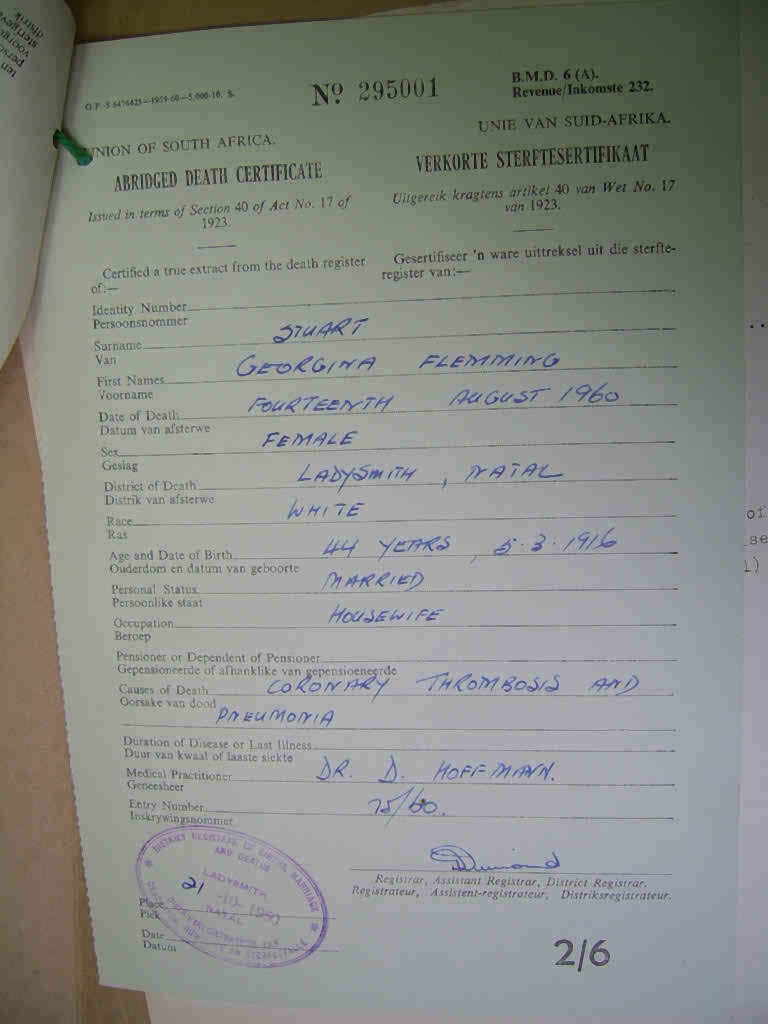 G.P.-S 6476425—1959-60—5,000-10. S.
No. 295001
B.M.D. 6 (A).
Revenue/Inkomste 232.
UNION OF SOUTH AFRICA.
UNIE VAN SUID-AFRIKA.
ABRIDGED DEATH CERTIFICATE
VERKORTE STERFTESERTIFIKAAT
Issued in terms of Section 40 of Act No. 17 of
1923.
Uitgereik kragtens artikel 40 van Wet No. 17
van 1923.
Certified a true extract from the death register
of:—
Gesertifiseer 'n ware uittreksel uit die sterfte-
register van:—
Identity Number
Persoonsnommer
Surname STUART
Van
First Names GEORGINA FLEMMING
Voorname
Date of Death FOURTEENTH AUGUST 1960
Datum van afsterwe
Sex FEMALE
Geslag
District of Death LADYSMITH, NATAL
Distrik van afsterwe
Race WHITE
Ras
Age and Date of Birth 44 YEARS, 5.3.1916
Ouderdom en datum van geboorte
Personal Status MARRIED
Persoonlike staat
Occupation HOUSEWIFE
Beroep
Pensioner or Dependent of Pensioner
Gepensioneerde of afhanklike van gepensioeneerde
Causes of Death CORONARY THROMBOSIS AND
Oorsake van dood
PNEUMONIA
Duration of Disease or Last Illness
Duur van kwaal of laaste siekte
Medical Practitioner DR. D. HOFFMANN.
Geneesheer
Entry Number 75/60.
Inskrywingsnommer
DISTRICT REGISTRAR OF BIRTHS, MARRIAGES
AND DEATHS
LADYSMITH
21 -10-
NATAL
Registrar, Assistant Registrar, District Registrar.
Registrateur, Assistent-registrateur, Distriksregistrateur.
Place
Plek
Date
Datum
2/6